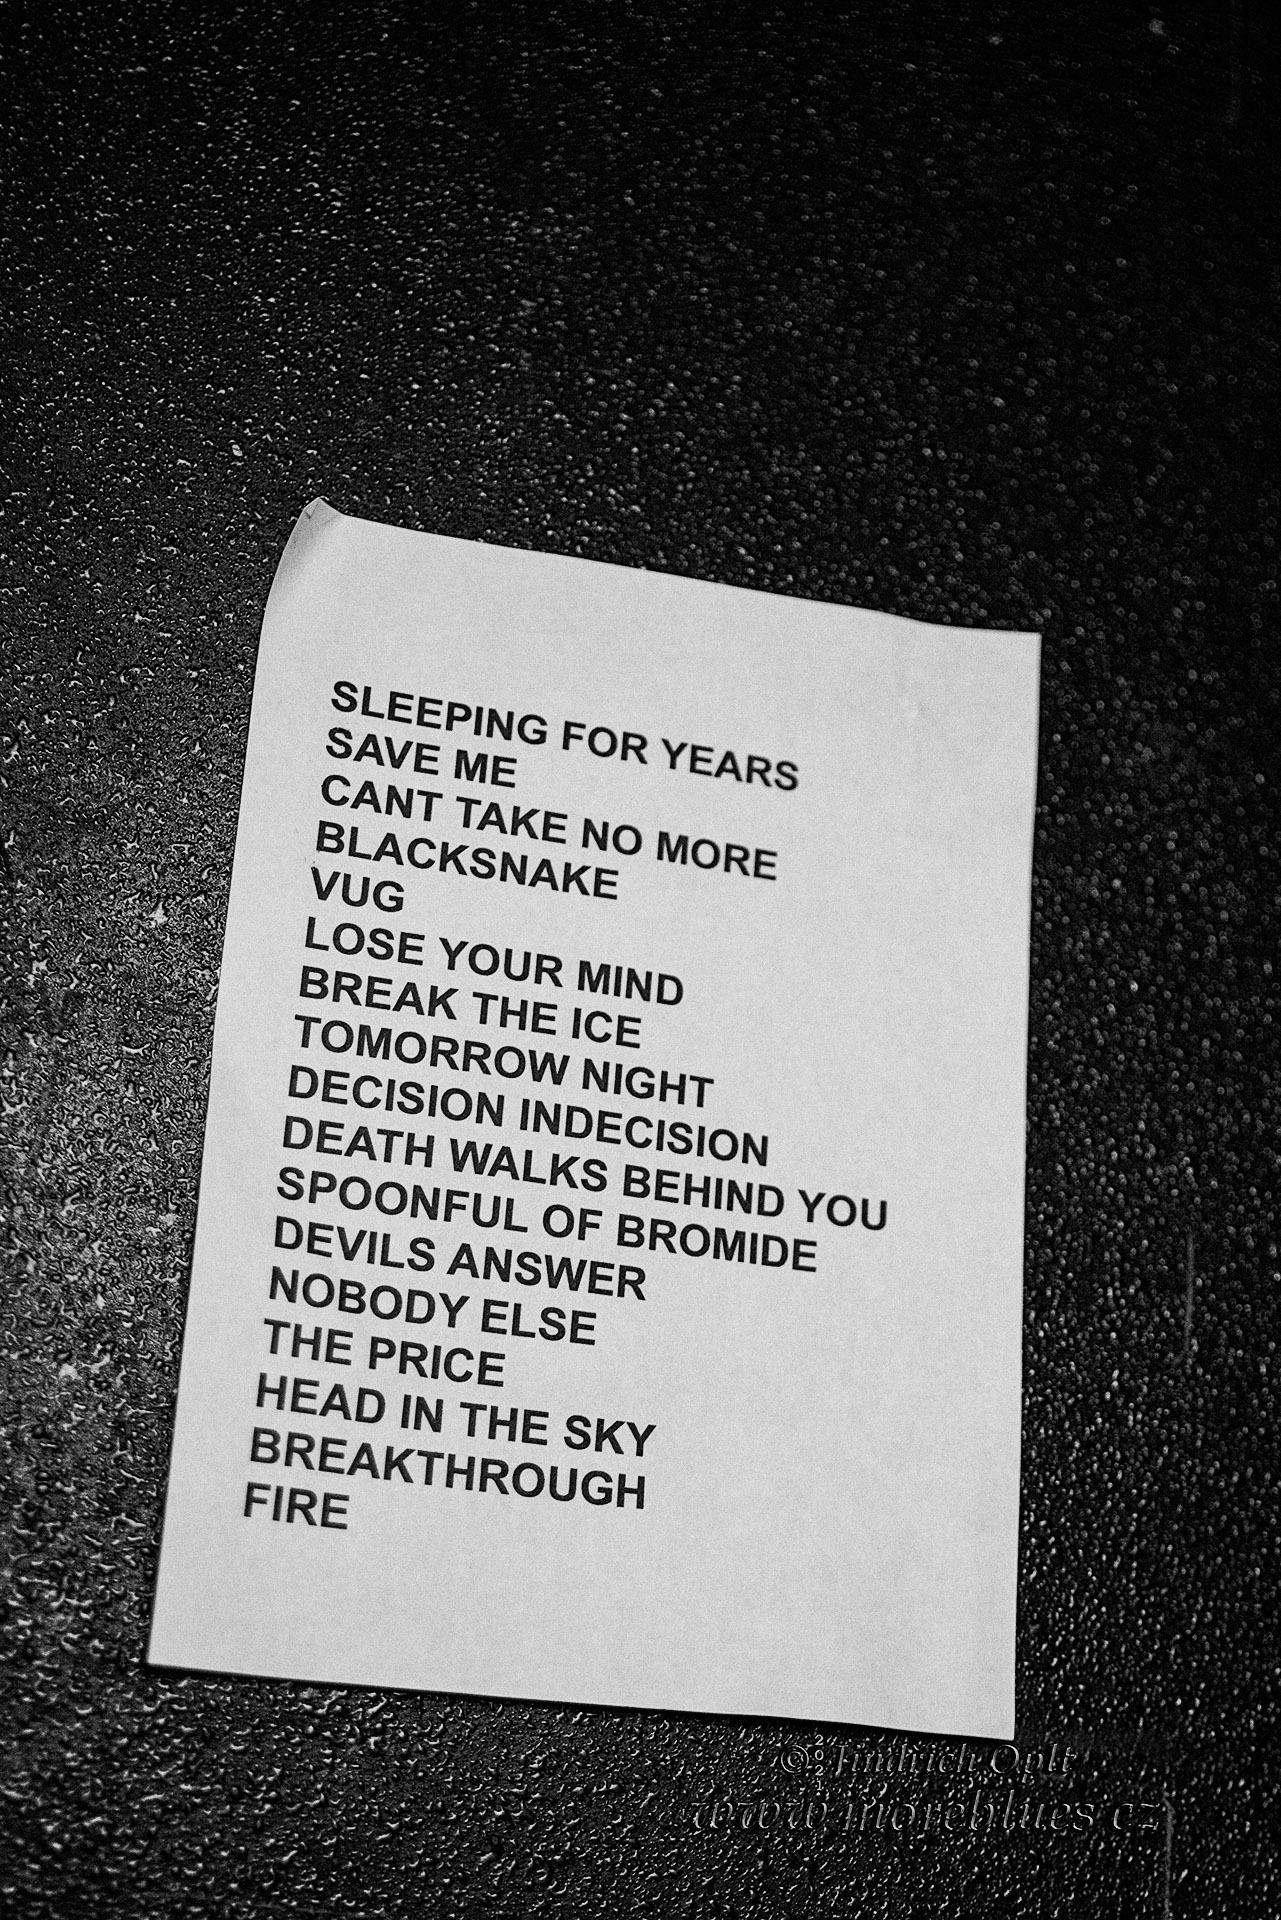 SLEEPING FOR YEARS
SAVE ME
CANT TAKE NO MORE
BLACKSNAKE
VUG
LOSE YOUR MIND
BREAK THE ICE
TOMORROW NIGHT
DECISION INDECISION
DEATH WALKS BEHIND YOU
SPOONFUL OF BROMIDE
DEVILS ANSWER
NOBODY ELSE
THE PRICE
HEAD IN THE SKY
BREAKTHROUGH
FIRE
© Jindrich Oplt
www.moreblues.cz